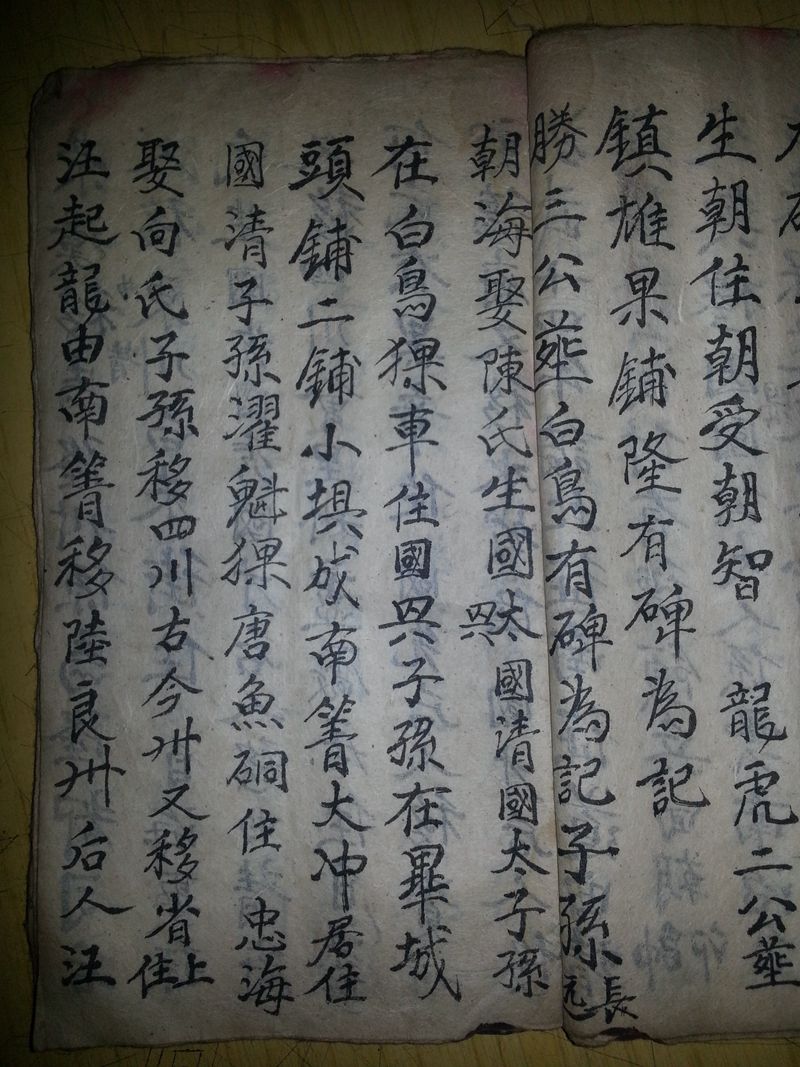 生朝住朝受朝智 龍虎二公塟
鎮雄果鋪隆有碑為記
勝三公塟白鳥有碑為記子孫長远
朝海娶陳氏生國太國㒷國清國太子孫
在白鳥猓車住國㒷子孫在畢城
頭鋪二鋪小埧成南箐大冲居住
國清子孫濯魁猓唐魚硐住 忠海
娶向氏子孫移四川古今卅又移省上住
汪起龍由南箐移陸良卅后人汪